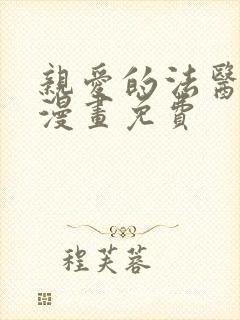 親愛的法醫
漫畫免費
程芙蓉